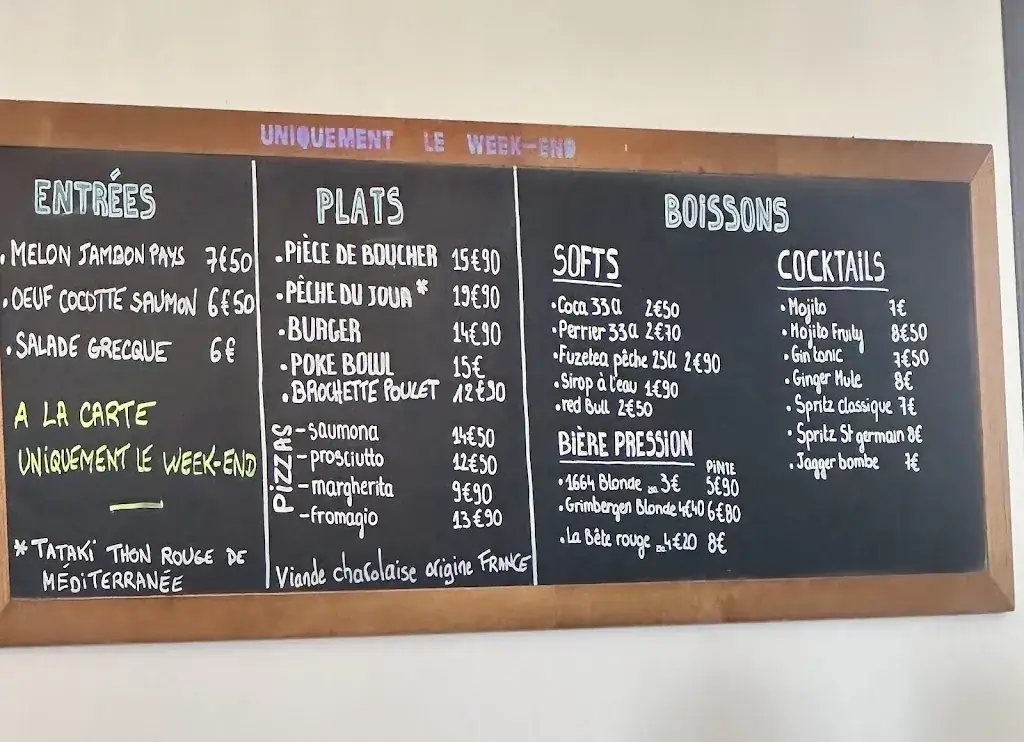 UNIQUEMENT LE WEEK-END
ENTRÉES
. MELON JAMBON PAYS 7€50
. OEUF COCOTTE SAUMON 6€50
. SALADE GRECQUE 6€
A LA CARTE
UNIQUEMENT LE WEEK-END
* TATAKI THON ROUGE DE
MÉDITERRANÉE
PLATS
. PIÈCE DE BOUCHER 15€90
. PÊCHE DU JOUR * 19€90
. BURGER 14€90
. POKE BOWL 15€
. BROCHETTE POULET 12€90
PIZZAS
- saumona 14€50
- prosciutto 12€50
- margherita 9€90
- fromagio 13€90
Viande charolaise origine FRANCE
BOISSONS
SOFTS
. Coca 33Cl 2€50
. Perrier 33Cl 2€70
. Fuzetea pêche 25Cl 2€90
. Sirop à l'eau 1€90
. red Bull 2€50
BIÈRE PRESSION
PINTE
. 1664 Blonde 3€ 5€90
. Grimbergen Blonde 4€40 6€80
. La Bête rouge 4€20 8€
COCKTAILS
. Mojito 7€
. Mojito Fruity 8€50
. Gin tonic 7€50
. Ginger Mule 8€
. Spritz classique 7€
. Spritz St germain 8€
. Jagger bombe 7€